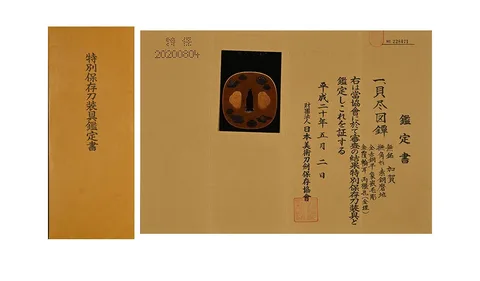 特別保存刀装具鑑定書
特保
20200804
鑑定書
一、貝尽図鐔
無銘 加賀
右は當協會に於て審査の結果特別保存刀装具と
鑑定しこれを証する
平成二十年五月二日
財團法人日本美術刀剣保存協會